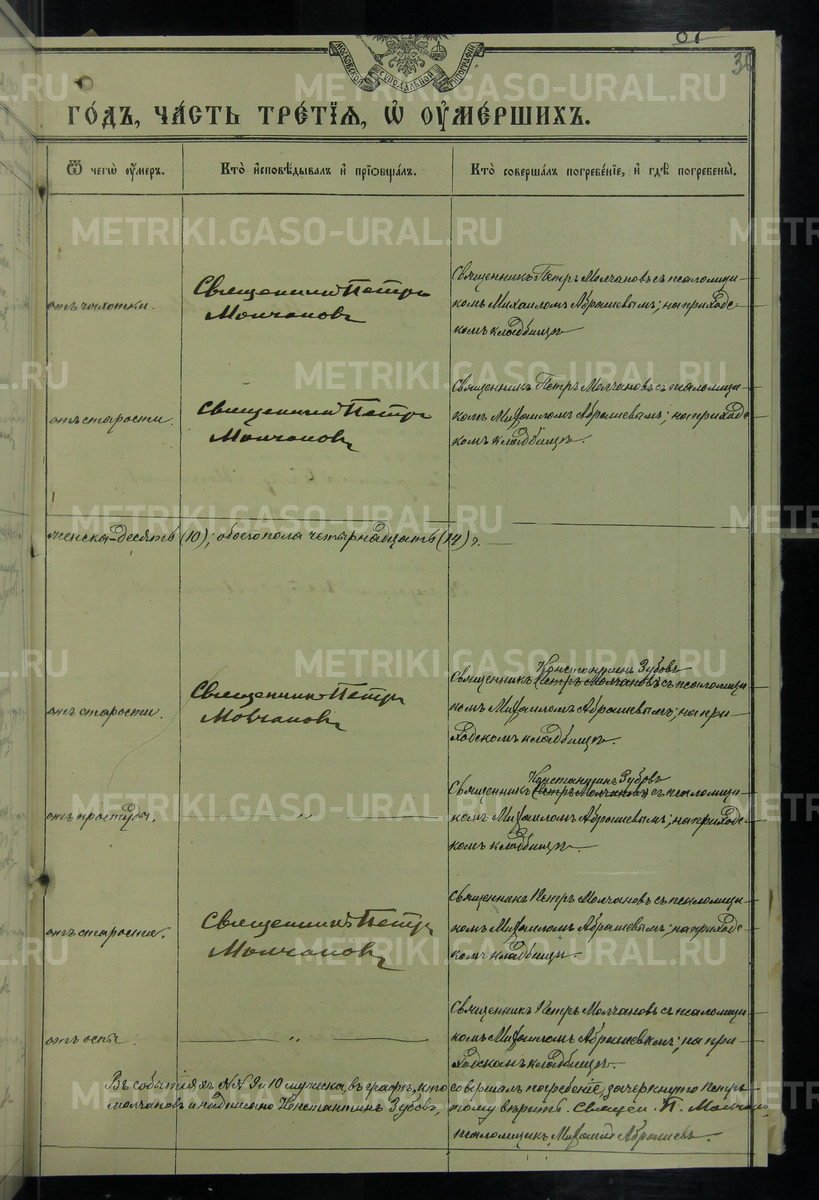 МОСКОВСКОЙ СѴНОДАЛЬНОЙ ТИПОГРАФІИ
ГО́ДЪ, ЧА́СТЬ ТРЕ́ТІѦ, Ѡ҆ ОУ҆МЕ́РШИХЪ.
Ѿ чегѡ̀ оу҆́меръ.
Кто̀ и҆сповѣ́дывалъ и҆ прїѡбща́лъ.
Кто̀ соверша́лъ погребе́нїе, и҆ гдѣ̀ погребены̀.
отъ чахотки.
Священникъ Петръ
Молчановъ
Священникъ Петръ Молчановъ съ псаломщи-
комъ Михаиломъ Абрашевымъ; на приходс-
комъ кладбищѣ
отъ старости.
Священникъ Петръ
Молчановъ
Священникъ Петръ Молчановъ съ псаломщи-
комъ Михаиломъ Абрашевымъ; на приходс-
комъ кладбищѣ.
женска-десять (10); обоего пола четырнадцать (14).
отъ старости.
Священникъ Петръ
Молчановъ
Константинъ Зубовъ
Священникъ Петръ Молчановъ съ псаломщи-
комъ Михаиломъ Абрашевымъ; на при-
ходскомъ кладбищѣ.
отъ простуды.
"
Константинъ Зубовъ
Священникъ Петръ Молчановъ съ псаломщи-
комъ Михаиломъ Абрашевымъ; на приходс-
комъ кладбищѣ.
отъ старости.
Священникъ Петръ
Молчановъ
Священникъ Петръ Молчановъ съ псаломщи-
комъ Михаиломъ Абрашевымъ; на приходс-
комъ кладбищѣ.
отъ оспы.
"
Священникъ Петръ Молчановъ съ псаломщи-
комъ Михаиломъ Абрашевымъ; на при-
ходскомъ кладбищѣ.
Въ событіяхъ №№ 9 и 10 мужеска, въ графѣ, кто совершалъ погребеніе, зачеркнуто Петръ
Молчановъ и надписано Константинъ Зубовъ, тому вѣрить. Свящ. П. Молчановъ
псаломщикъ Михаилъ Абрашевъ.
METRIKI.GASO-URAL.RU